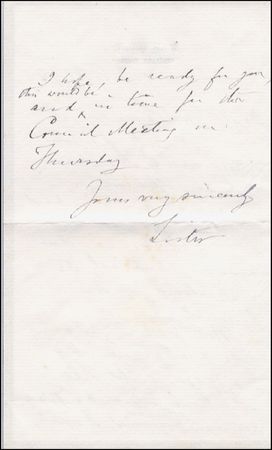 I hope, be ready for you
this would be
and in time for the
Council Meeting on
Thursday
Yours very sincerely
Lister